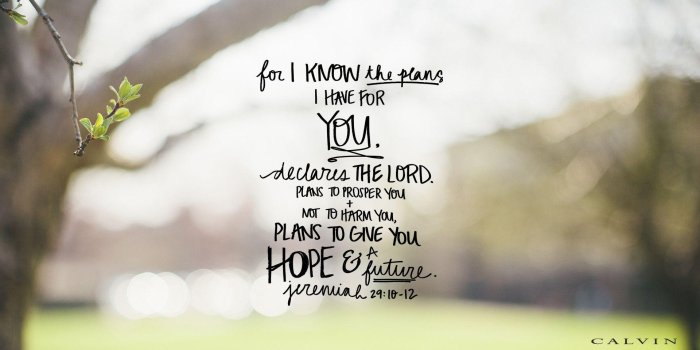 for I KNOW the plans
I HAVE FOR
YOU,
declares THE LORD.
PLANS TO PROSPER YOU
+
NOT TO HARM YOU,
PLANS TO GIVE YOU
HOPE & A future.
jeremiah 29:10-12
CALVIN